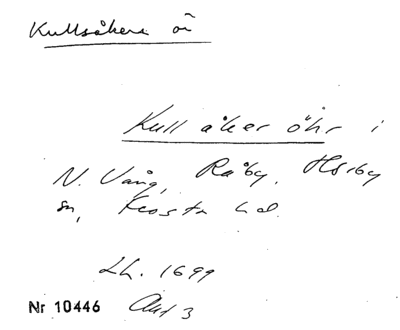 Kullsåkers ör
Kull åker öhr i
N. Vång, Råby, Hörby
sn, Frosta hd.
Lh. 1699
Nr 10446 Akt 3